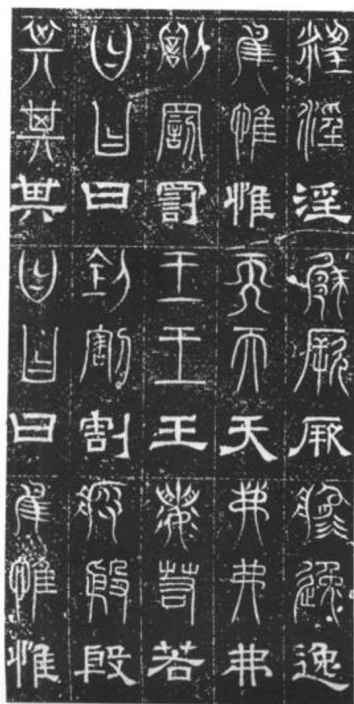 淫淫淫厥厥厥逸逸逸
惟惟惟天天天弗弗弗
罰罰罰王王王若若若
曰曰曰割割割殷殷殷
其其其曰曰曰惟惟惟